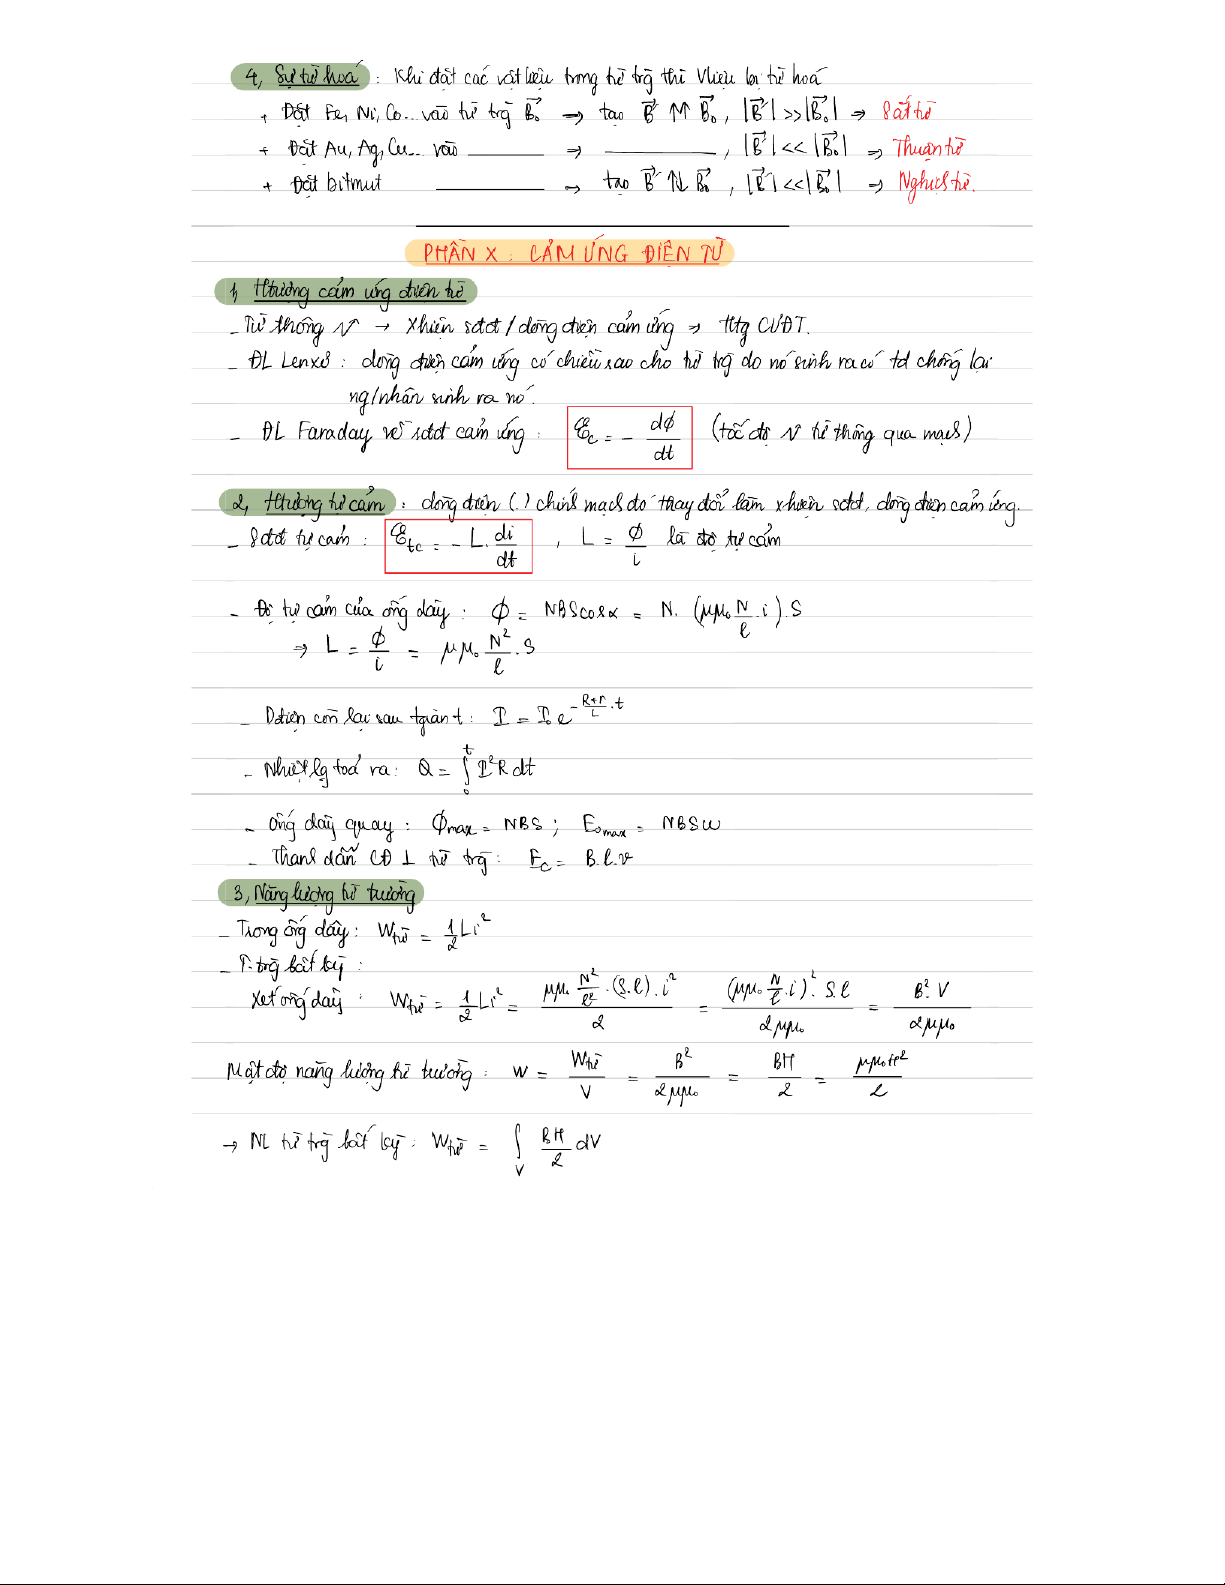 4, Sự từ hoá : Khi đặt các vật liệu trong từ trg thì Vliệu bị từ hoá
+ Đặt Fe, Ni, Co... vào từ trg B₀⃗ → tạo B⃗' ↑↑ B⃗₀, |B⃗'| >> |B⃗₀| ⇒ Sắt từ
+ Đặt Au, Ag, Cu... vào ______ ⇒ ______, |B⃗'| << |B⃗₀| ⇒ Thuận từ
+ Đặt bitmut ______ ⇒ tạo B⃗' ↑↓ B⃗₀, |B⃗'| << |B⃗₀| ⇒ Nghịch từ.
PHẦN X : CẢM ỨNG ĐIỆN TỪ
1, Htượng cảm ứng điện từ
- Từ thông N → Xhiện sđđ / dòng điện cảm ứng ⇒ Htg CƯĐT.
- ĐL Lenxơ : dòng điện cảm ứng có chiều sao cho từ trg do nó sinh ra có td chống lại
ng/nhân sinh ra nó.
- ĐL Faraday về sđđ cảm ứng : Ec = - dϕ/dt (tốc độ N từ thông qua mạch)
2, Htượng tự cảm : dòng điện (.) chính mạch đó thay đổi làm xhiện sđđ, dòng điện cảm ứng.
- Sđđ tự cảm : Etc = - L. di/dt , L = ϕ/i là độ tự cảm
- Độ tự cảm của ống dây : ϕ = NBScosα = N. (μμ₀ N/l .i).S
⇒ L = ϕ/i = μμ₀ N²/l .S
- Dđiện còn lại sau tgian t : I = I₀e^(-(R+r)/L .t)
- Nhiệt lg toả ra : Q = ∫₀ᵗ I²R dt
- Ống dây quay : ϕmax = NBS ; E₀max = NBSω
- Thanh dẫn CĐ ⊥ từ trg : Ec = B.l.v
3, Năng lượng từ trường
- Trong ống dây : Wtừ = 1/2 Li²
- T.trg bất kỳ :
Xét ống dây : Wtừ = 1/2 Li² = (μμ₀ N²/l² .(S.l).i²)/2 = ((μμ₀ N/l .i)². S.l)/(2μμ₀) = B².V/(2μμ₀)
Mật độ năng lượng từ trường : W = Wtừ/V = B²/(2μμ₀) = BH/2 = μμ₀H²/2
→ NL từ trg bất kỳ : Wtừ = ∫V BH/2 dV